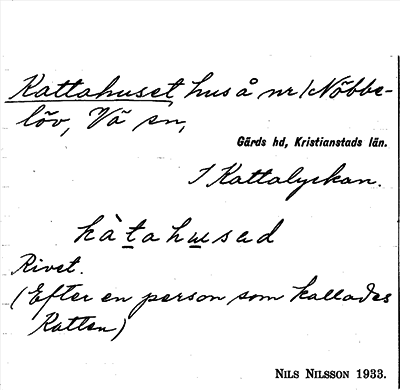 Kattahuset, hus å nr 1 Nöbbe-
löv, Vä sn,
Gärds hd, Kristianstads län.
I Kattalyckan.
kàtahusəd
Rivet.
(Efter en person som kallades
Katten)
NILS NILSSON 1933.